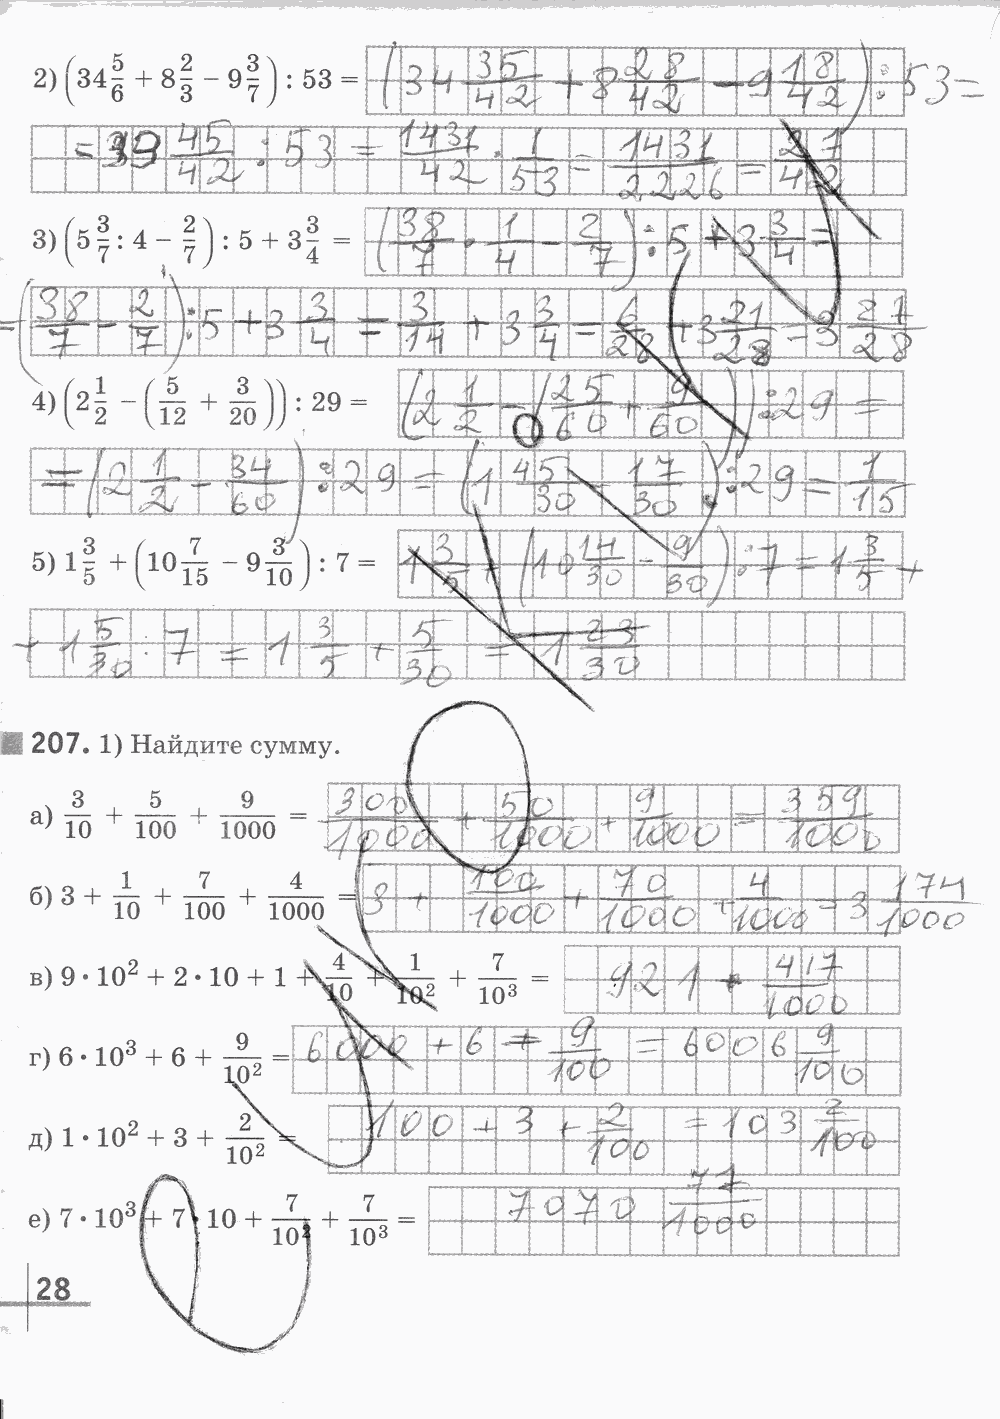 2) (34 5/6 + 8 2/3 − 9 3/7) : 53 = (34 35/42 + 8 28/42 − 9 18/42) : 53 =
= 33 45/42 : 53 = 1431/42 · 1/53 = 1431/2226 = 27/42
3) (5 3/7 : 4 − 2/7) : 5 + 3 3/4 = (38/7 · 1/4 − 2/7) : 5 + 3 3/4 =
= (38/7 − 2/7) : 5 + 3 3/4 = 3/14 + 3 3/4 = 6/28 + 3 21/28 = 3 27/28
4) (2 1/2 − (5/12 + 3/20)) : 29 = (2 1/2 − (25/60 + 9/60)) : 29 =
= (2 1/2 − 34/60) : 29 = (1 45/30 − 17/30) : 29 = 1/15
5) 1 3/5 + (10 7/15 − 9 3/10) : 7 = 1 3/5 + (10 14/30 − 9/30) : 7 = 1 3/5 +
+ 1 5/30 : 7 = 1 3/5 + 5/30 = 1 23/30
207. 1) Найдите сумму.
а) 3/10 + 5/100 + 9/1000 = 300/1000 + 50/1000 + 9/1000 = 359/1000
б) 3 + 1/10 + 7/100 + 4/1000 = 3 + 100/1000 + 70/1000 + 4/1000 = 3 174/1000
в) 9 · 10² + 2 · 10 + 1 + 4/10 + 1/10² + 7/10³ = 921 + 417/1000
г) 6 · 10³ + 6 + 9/10² = 6000 + 6 + 9/100 = 6006 9/100
д) 1 · 10² + 3 + 2/10² = 100 + 3 + 2/100 = 103 2/100
е) 7 · 10³ + 7 · 10 + 7/10² + 7/10³ = 7070 77/1000
28